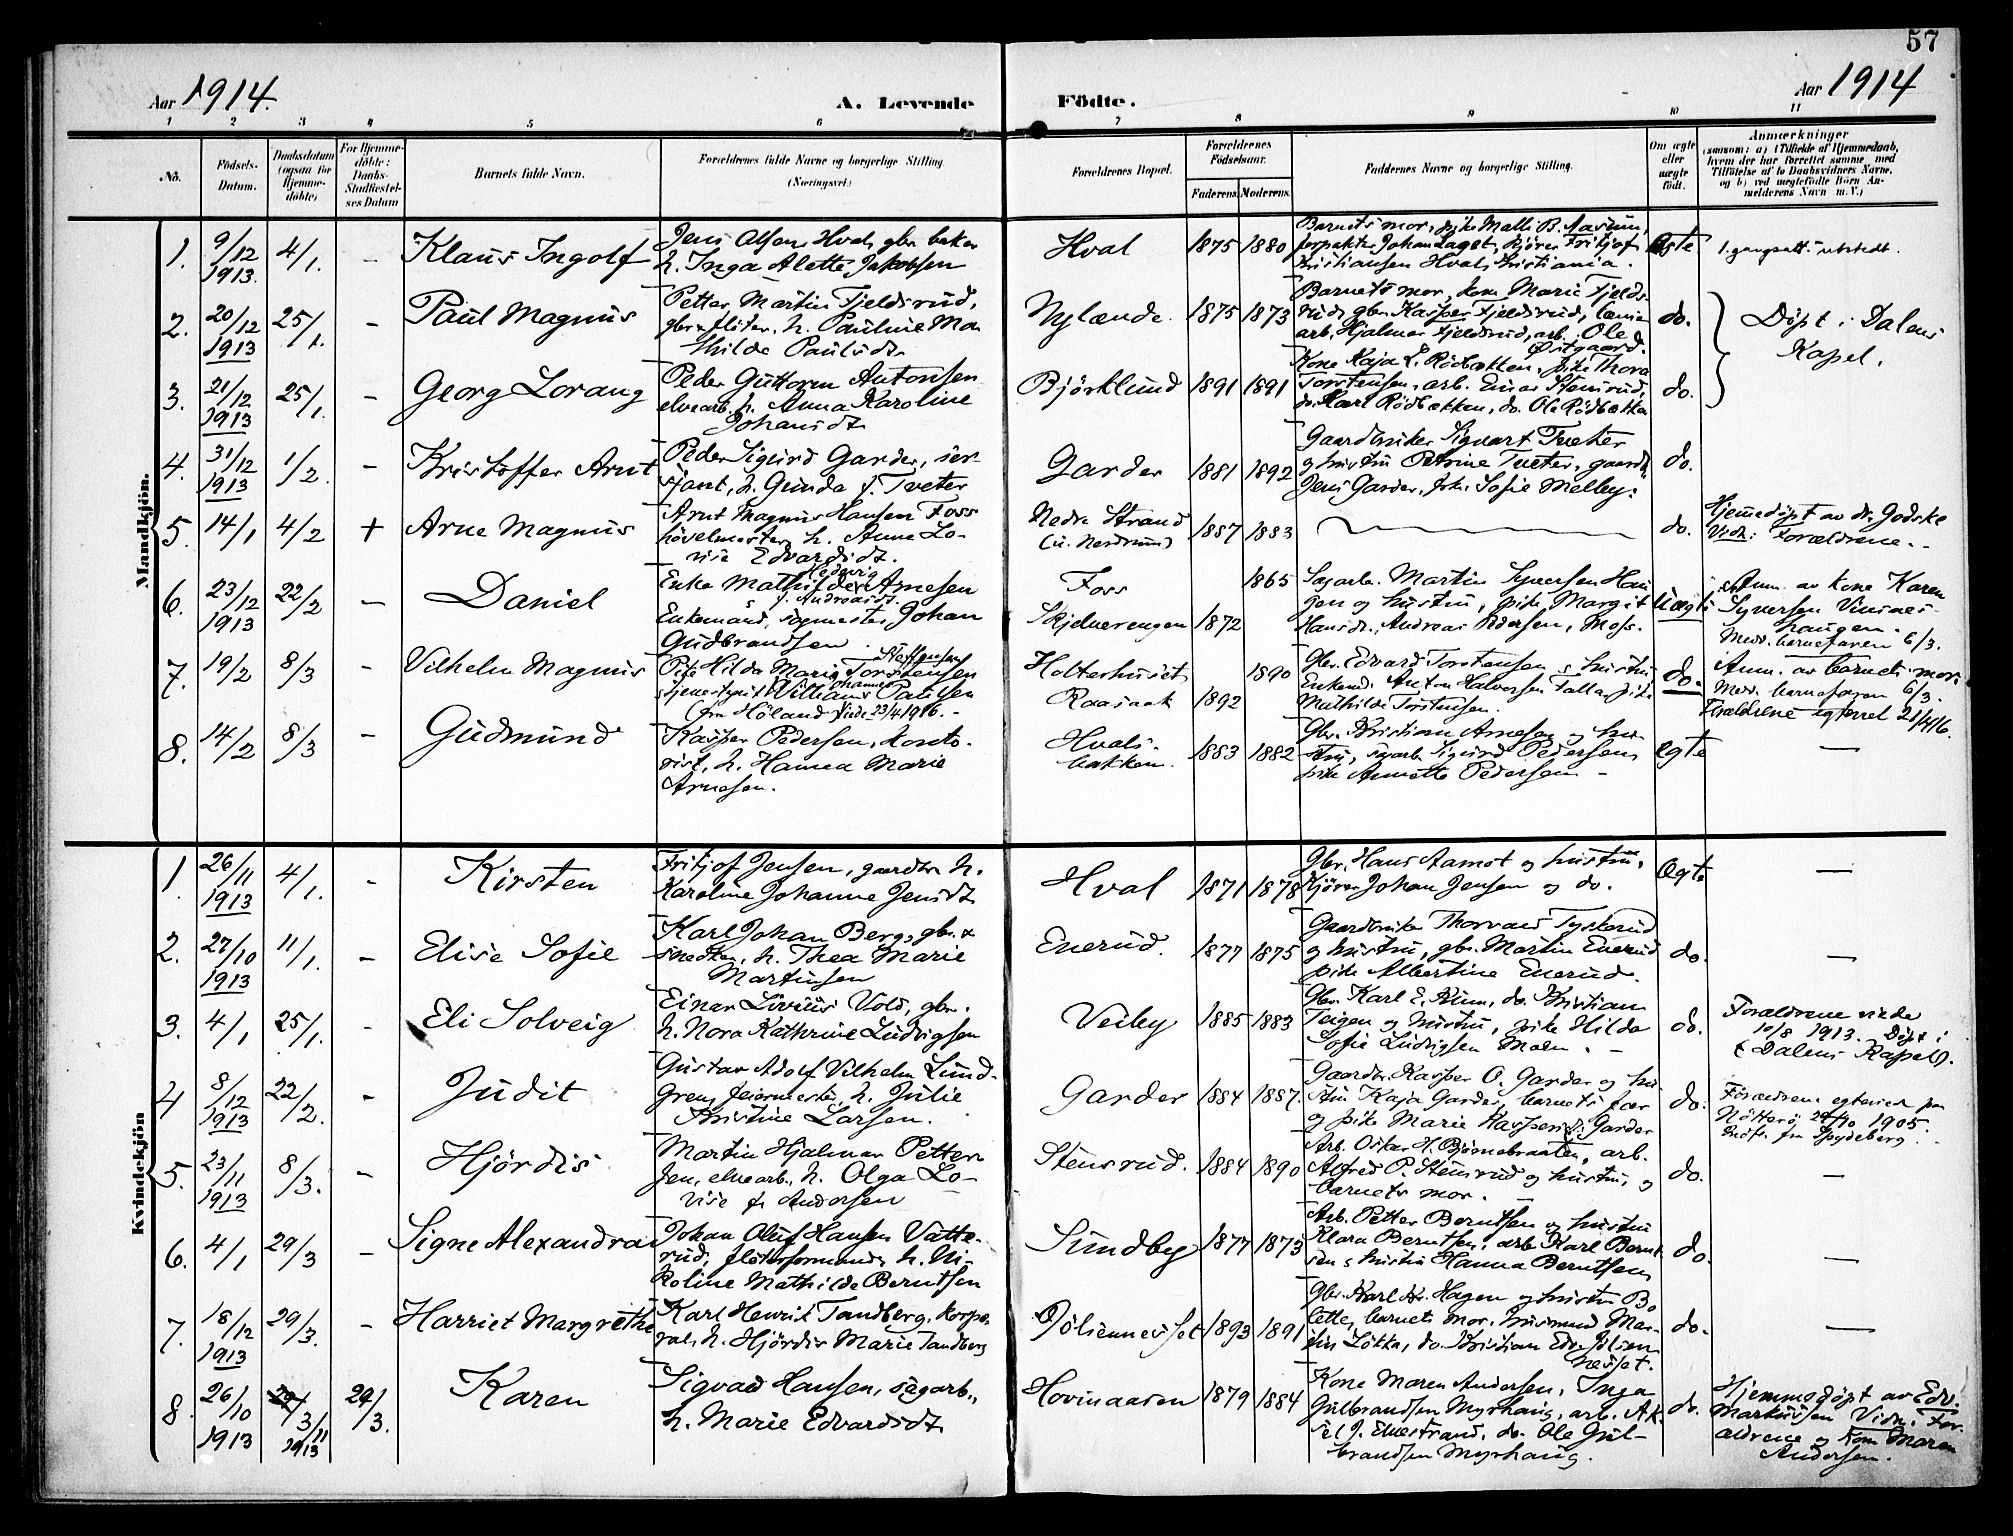 57
Aar 1914.
A. Levende
Fødte.
Aar 1914
1 2 3 4 5 6 7 8 9 10 11
No.
Fødsels-
Datum.
Daabsdatum
(ogsaa for
Hjemme-
døbte)
For Hjemme-
døbte:
Daabs-
Stadfæstel-
ses Datum
Barnets fulde Navn.
Forældrenes fulde Navne og borgerlige Stilling.
(Næringsvei.)
Forældrenes Bopæl.
Forældrenes
Fødselsaar.
Faderens. Moderens.
Faddernes Navne og borgerlige Stilling.
Om ægte
eller
uægte
født.
Anmærkninger
(saasom: a) i Tilfælde af Hjemmedaab,
hvem der har forrettet samme med
Tilføielse af to Daabsvidners Navne,
og b) ved uægtefødte Børn An-
melderens Navn m. V.)
Mandkjøn.
1. 9/12 1913. 4/1. - Klaus Ingolf
Jens Olsen Hval, gbr. baker
h. Inga Alette Jakobsen
Hval 1875 1880
Barnets mor, pike Malli B. Aasrum,
forpakter Johan Laget, kjører Fritjof
Kristiansen Hval, Kristiania.
Ægte 1. gangsatt. utstedt.
2. 20/12 1913 25/1. - Paul Magnus
Petter Martin Fjeldsrud,
gbr. & fløter, h. Pauline Ma
thilde Paulsdt.
Nylænde. 1875 1873
Barnets mor, kone Marie Fjelds-
rud, gbr. Kasper Fjeldsrud,
arb. Hjalmar Fjeldsrud, arb. Ole
Østgaard.
do.
Døpt i Dalens
Kapel.
3. 21/12 1913 25/1. - Georg Lorang
Peder Guttorm Antonsen
elvearb. h. Anna Karoline
Johansdt.
Bjørklund 1891 1891
Kone Kaja L. Rødbækken, pike Thora
Torstensen, arb. Einar Stensrud,
do. Karl Rødbækken, do. Ole Rødbækken
do.
4. 31/12 1913 1/2. - Kristoffer Arnt
Peder Sigurd Garder, ser-
sjant, h. Gunda f. Tveter
Garder 1881 1892
Gaardbruker Sigvart Tveter
og hustru Petrine Tveter, gaardbr.
Jens Garder, frk. Sofie Melby.
do.
5. 14/1 4/2 + Arne Magnus
Arnt Magnus Hansen Foss
høvelmester h. Anne Lo-
vise Edvardsdt.
Nedre Strand
(u. Nordrum) 1887 1883
do.
Hjemmedøpt av dr. Godske
Vidn: Forældrene.
6. 23/12 1913 22/2 - Daniel
Enke Mathilde Hedevig Arnesen
f. Andreasdt.
Enkemand, sagmester Johan
Gudbrandsen
Foss 1865
Skjelverengen 1872
Sagarb. Martin Syversen Hau
gen og hustru, pike Margit
Hansdt., Andreas Pedersen, Moss.
Uægte
Anm. av kone Karen
Syversen Vinsnes-
haugen.
Medd. barnefaren 6/3.
7. 19/2 8/3 - Vilhelm Magnus
Pike Hilda Marie Steffensen Torstensen
tjenestegut Williams Johannes Paulsen
(fra Høland) Viede 23/4 1916.
Holterhuset 1890
Raasaak 1892
Gbr. Edvard Torstensen & hustru,
Enkemd. Anton Halvorsen Falla, pike
Mathilde Torstensen.
do.
Anm. av barnets mor.
Medd. barnefaren 6/3.
Forældrene egteviet 21/4 16.
8. 14/2 8/3 - Gudmund
Kasper Pedersen, konto-
rist, h. Hanna Marie
Arnesen.
Hvals-
bakken. 1883 1882
Gbr. Kristian Arnesen og hu-
stru, sagarb. Sigurd Pedersen,
pike Annette Pedersen
egte -
Kvindekjøn
1. 26/11 1913 4/1. - Kirsten
Fritjof Jensen, gaardbr. h.
Karoline Johanne Jensdt.
Hval 1871 1878
Gbr. Hans Aamot og hustru,
Kjører Johan Jensen og do.
Ægte -
2. 27/10 1913 11/1. - Elise Sofie
Karl Johan Berg, gbr. &
snedker, h. Thea Marie
Martinsen
Enerud. 1877 1875
Gaardbruker Thorvald Tyskerud
og hustru, gbr. Martin Enerud
pike Albertine Enerud.
do. -
3. 4/1 25/1. - Eli Solveig
Einar Liverius Vold, gbr.
h. Nora Kathrine Ludvigsen
Veiby 1885 1883
Gbr. Karl E. Riim, do. Kristian
Teigen og hustru, pike Hilda
Sofie Ludvigsen Moen.
do.
Forældrene viede
10/8 1913. Døpt i
(Dalens Kapel).
4 8/12 1913 22/2. - Judit
Gustav Adolf Vilhelm Lund-
gren, feiermester, h. Julie
Kristine Larsen.
Garder 1884 1887.
Gaardbr. Kasper O. Garder og hu-
stru Kaja Garder, barnets far
og pike Marie Kaspersdt. Garder
do.
Forældrene egteviet paa
Nøtterø 1905.
Indfl. fra Spydeberg.
5. 23/11 1913 8/3. - Hjørdis
Martin Hjalmar Petter-
sen, elvearb., h. Olga Lo-
vise f. Andersen
Stensrud. 1884 1890
Arb. Oskar H. Bjørnebraaten, arb.
Alfred P. Stensrud og hustru, og
barnets mor.
do. -
6. 4/1 29/3 - Signe Alexandra
Johan Oluf Hansen Vatte-
rud, fløterformand, h. Ni-
koline Mathilde Berntsen
Sundby 1877 1873
Arb. Petter Berntsen og hustru
Klara Berntsen, arb. Karl Bernt-
sen & hustru Hanna Berntsen
do. -
7. 18/12 1913 29/3. - Harriet Margrethe
Karl Henrik Tandberg, korpo-
ral, h. Hjørdis Marie Tandberg
Jølsennesset 1893 1891
Gbr. Karl Kr. Hagen og hustru Bo
lette, barnets mor, husmand Mar-
tin Løkka, do. Kristian Edv. Jølsen
nesset.
do. -
8. 26/10 1913 29/3 /11 1913 29/3. Karen
Sigvad Hansen, sagarb.,
h. Marie Edvardsdt.
Hovinaasen 1879 1884
Kone Maren Andersen, Inga
Gulbrandsen Myrhaug, arb. Ak-
sel J. Elvestrand, do. Ole Gul-
brandsen Myrhaug.
do.
Hjemmedøpt av Edv.
Markussen Vidn. For-
ældrene og Kone Maren
Andersen.